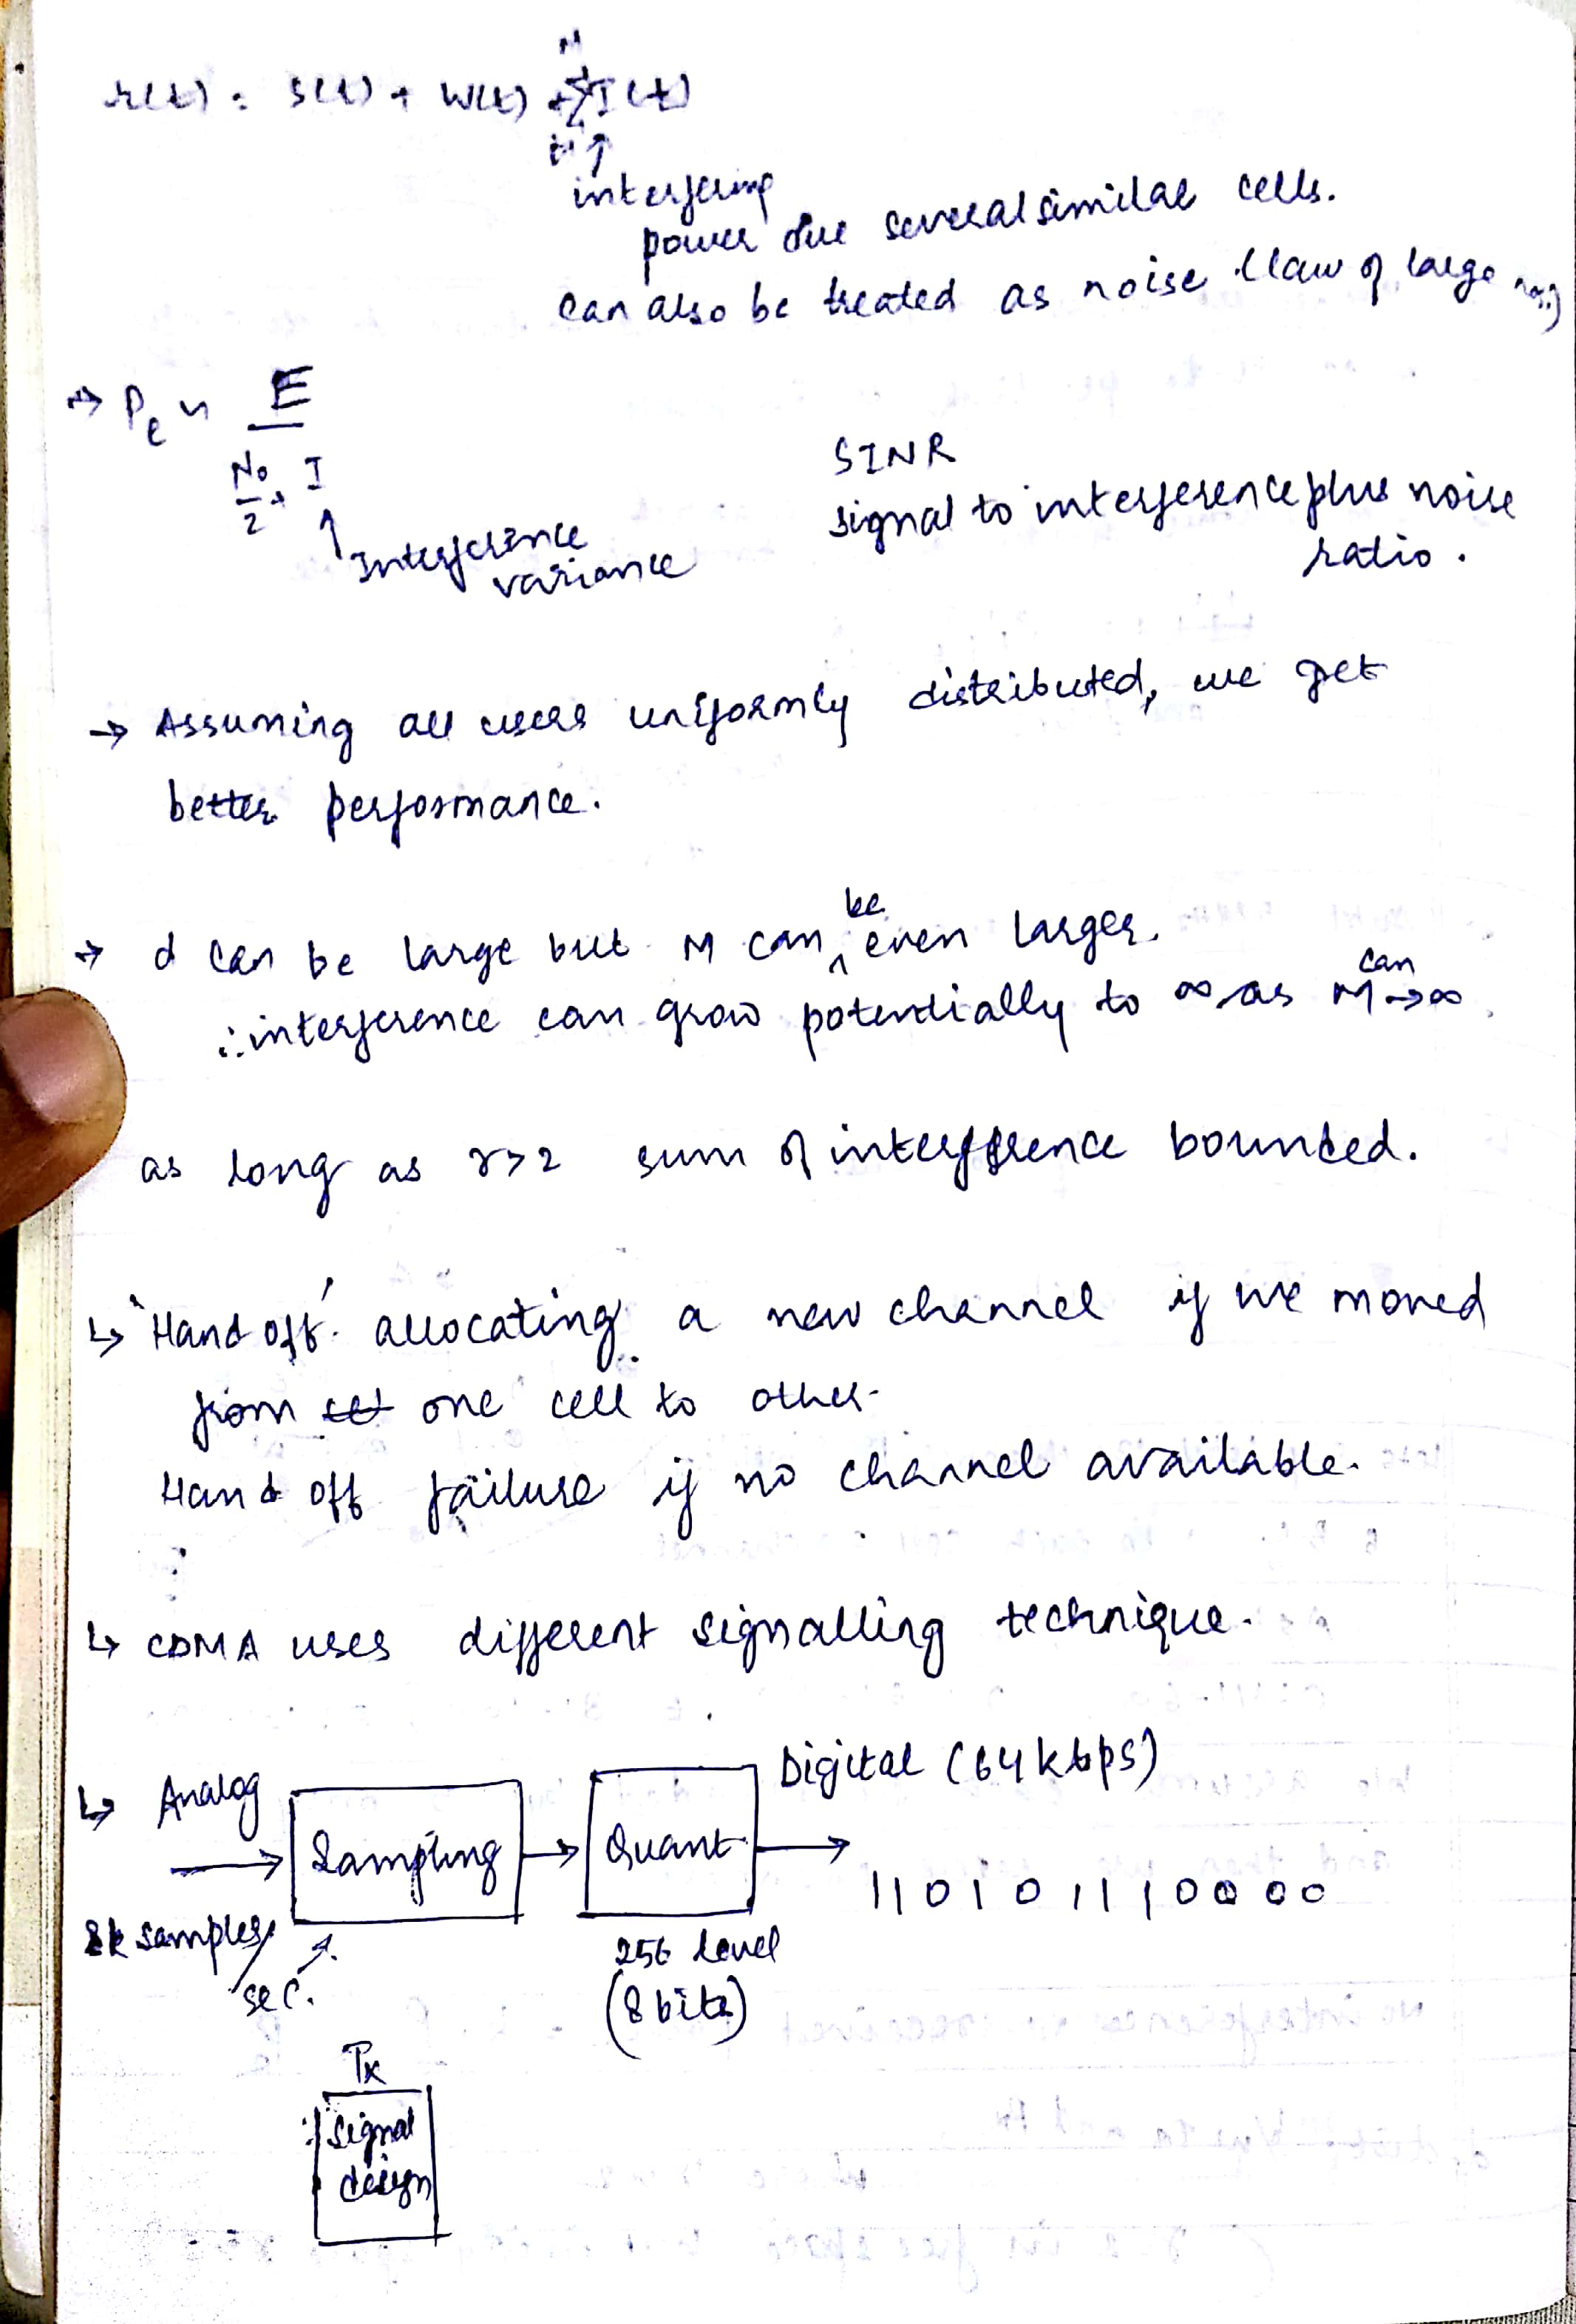 r(t) = s(t) + W(t) + Σ I(t)
M
i=1
interfering
power due several similar cells.
can also be treated as noise (law of large nos.)
→ Pe ~ E
N0/2 + I
↑ Interference
variance
SINR
signal to interference plus noise
ratio.
→ Assuming all users uniformly distributed, we get
better performance.
→ d can be large but M can be even larger.
∴ interference can grow potentially to ∞ as M can → ∞.
as long as γ>2 sum of interference bounded.
↳ 'Hand off' allocating a new channel if we moved
from one cell to other.
Hand off failure if no channel available.
↳ CDMA uses different signalling technique.
↳ Analog
Sampling
Quant
Digital (64 kbps)
110101110000
8k samples/
sec.
256 level
(8 bits)
Tx
signal
design